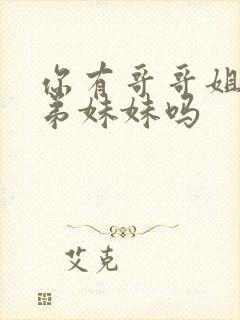 你有哥哥姐
弟妹妹吗
艾克